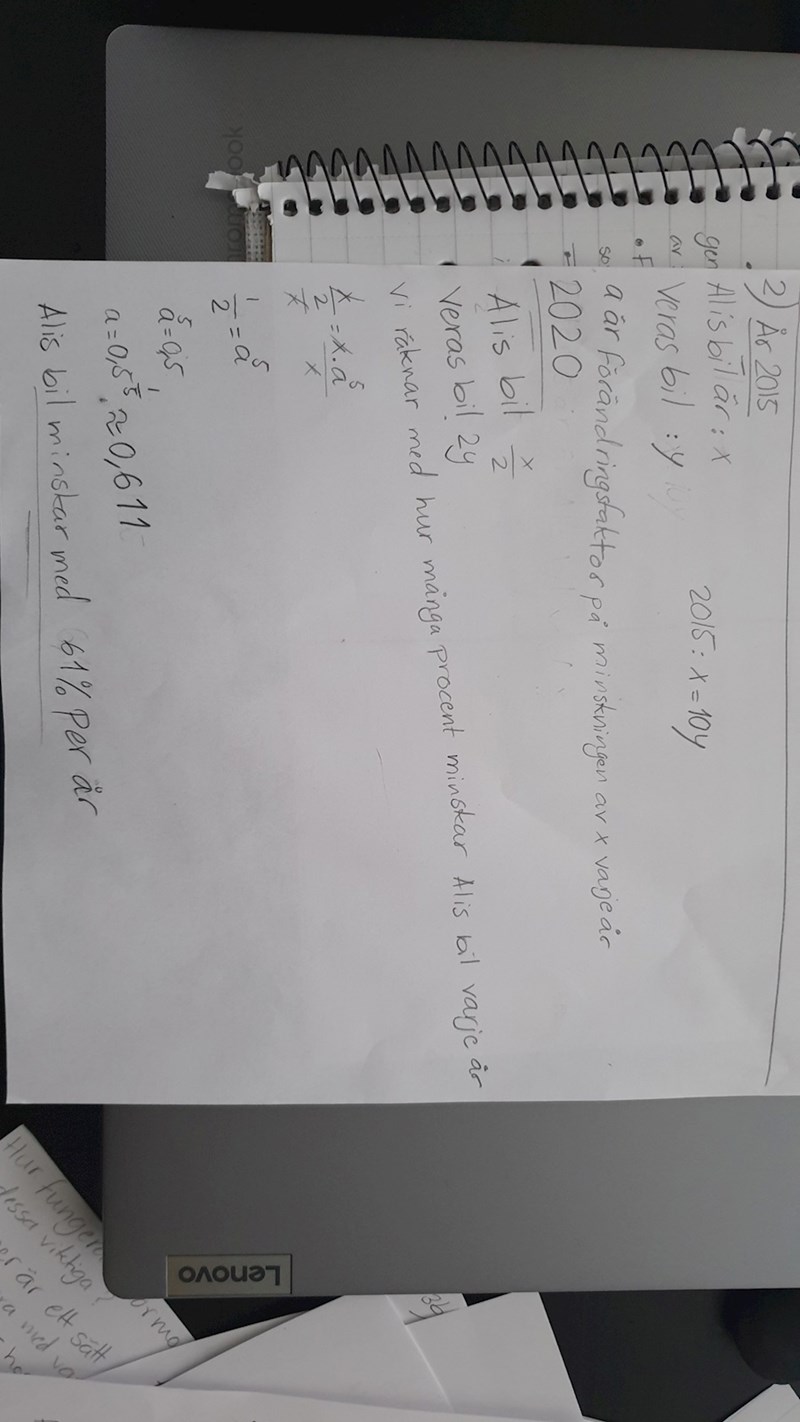 2) År 2015
Alis bil är: x
2015: x = 10y
Veras bil : y
a är förändringsfaktor på minskningen av x varje år
2020
Alis bil x/2
Veras bil 2y
Vi räknar med hur många procent minskar Alis bil varje år
x/2/x = x·a⁵/x
1/2 = a⁵
a⁵ = 0,5
a = 0,5^1/5 ≈ 0,611
Alis bil minskar med 61% Per år
gen
av
so
Lenovo
Hur fungera
dessa viktiga?
er är ett sätt
ra med va
orma
3y
ook